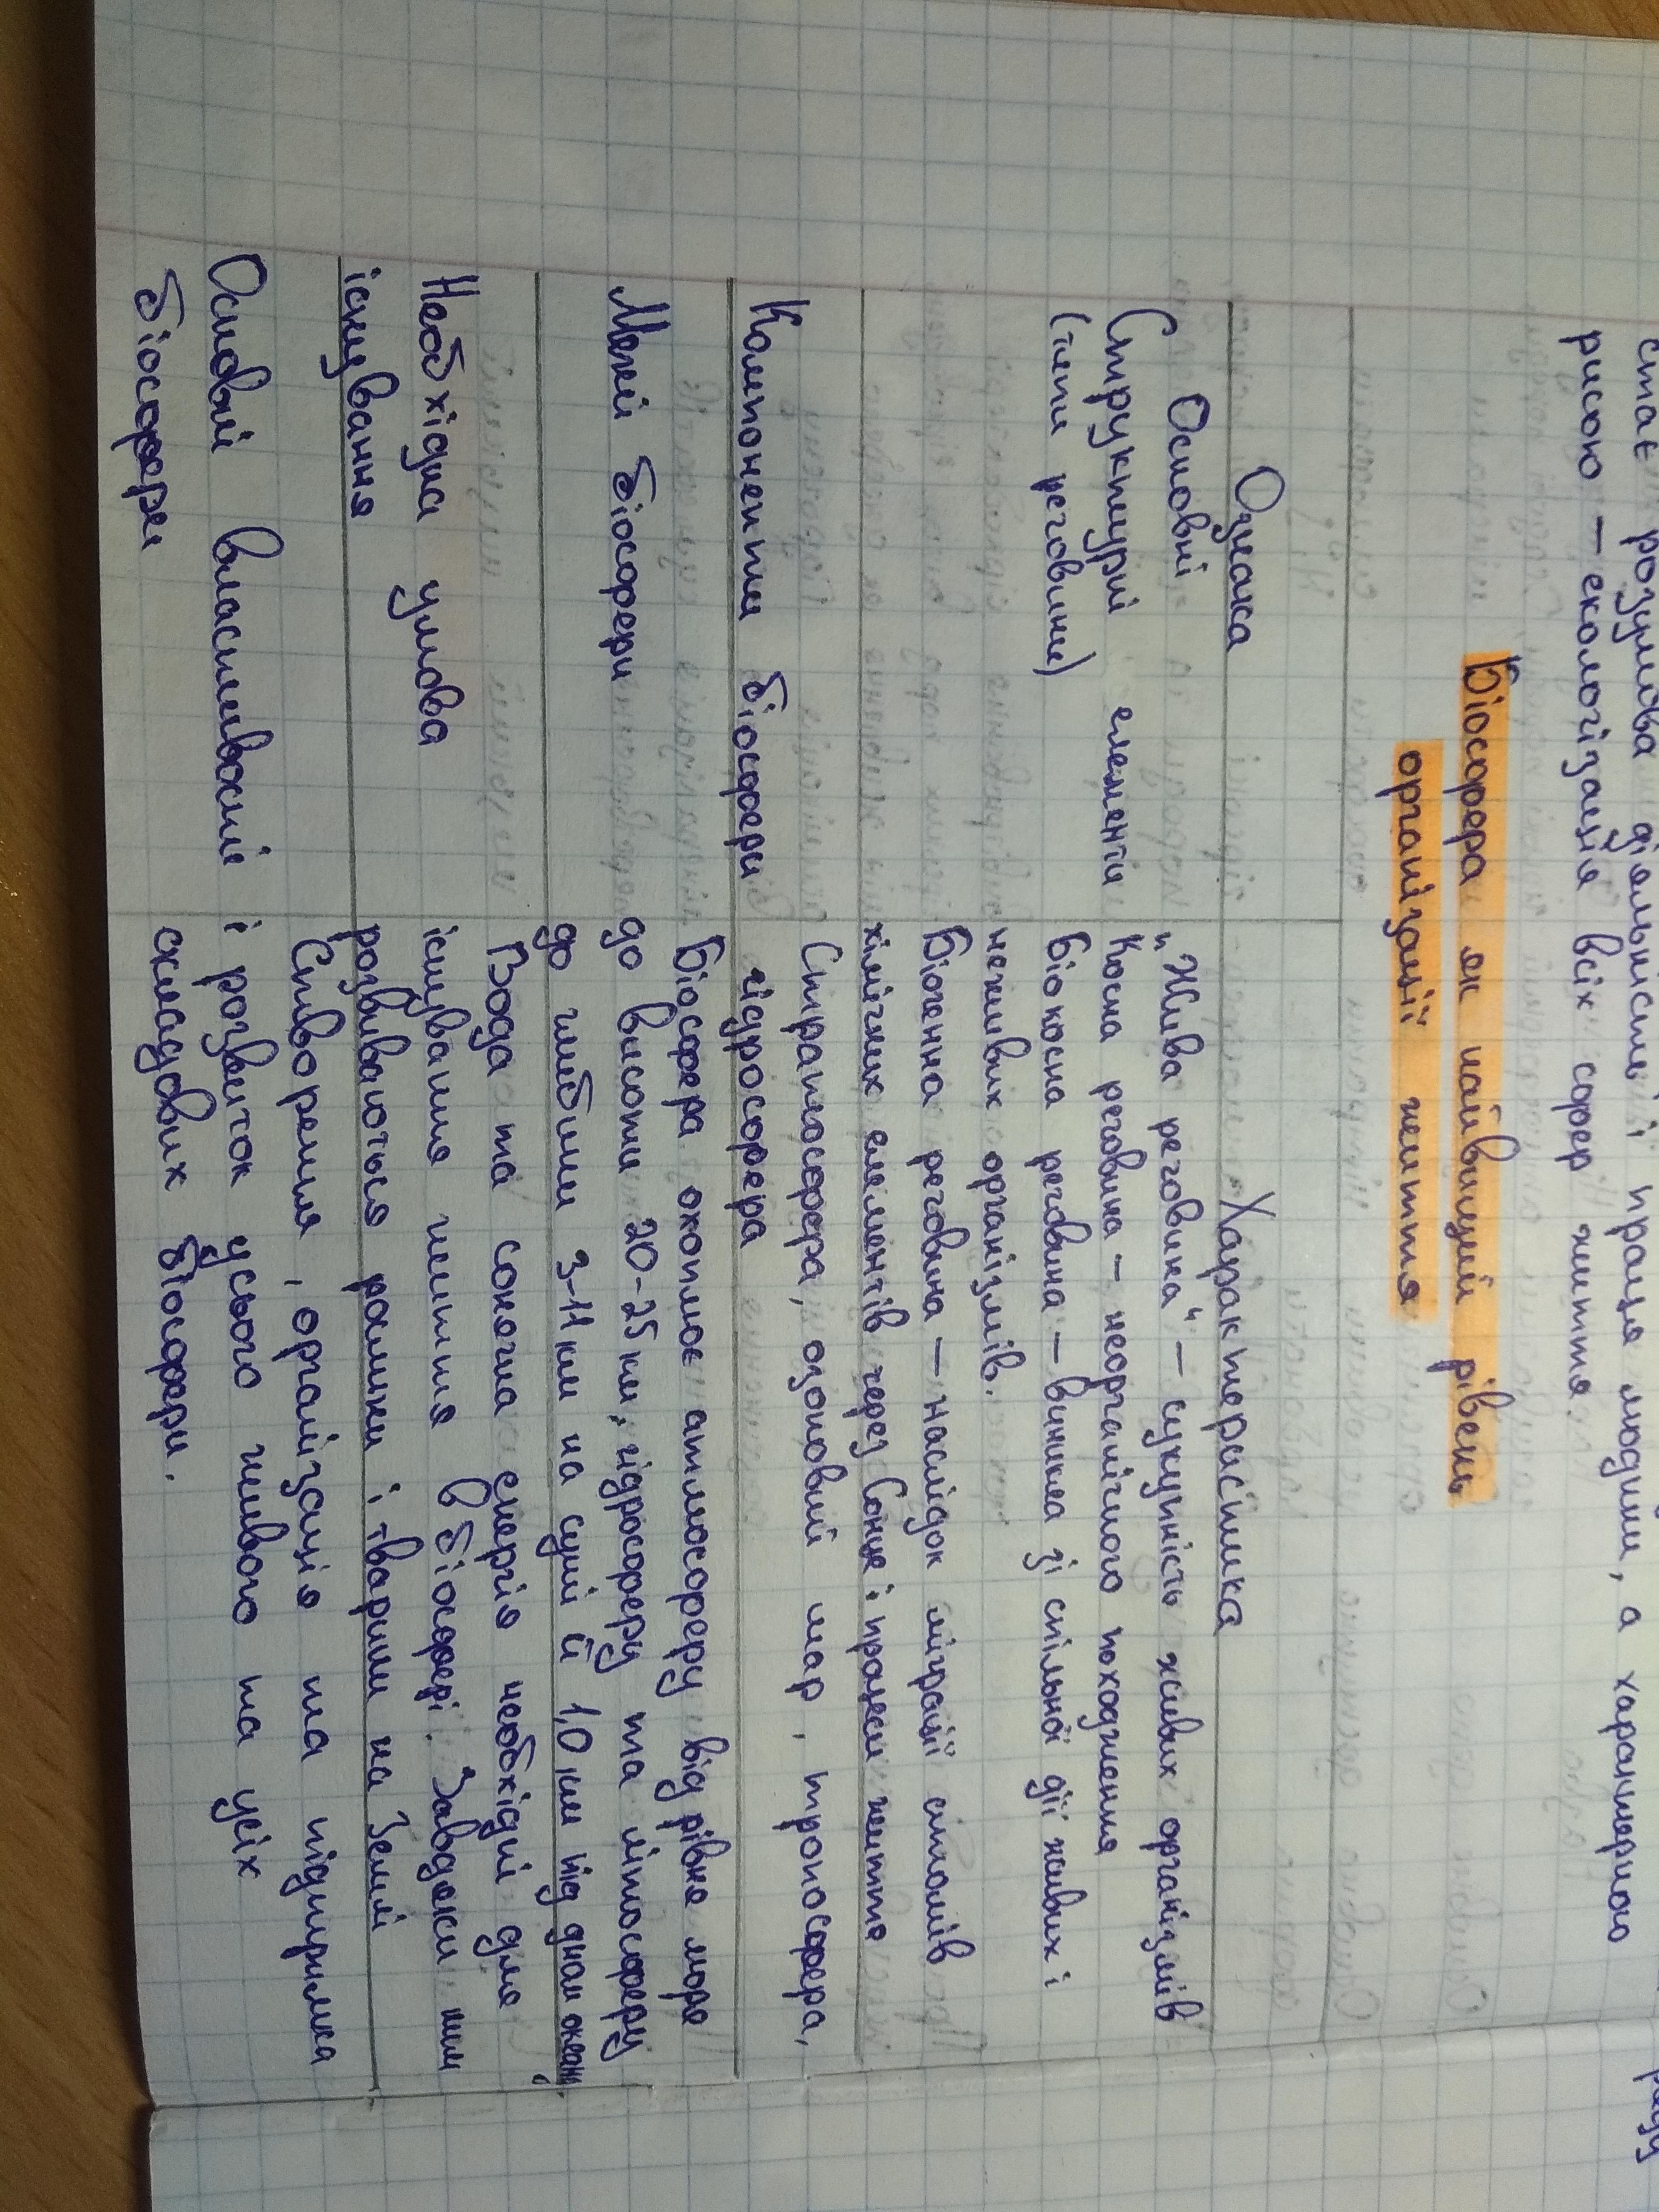 стає розумова діяльність і праця людини, а характерною
рисою – екологізація всіх сфер життя.
Біосфера як найвищий рівень
організації життя
Ознака
Характеристика
Основні
Структурні елементи
(типи речовини)
„Жива речовина“ – сукупність живих організмів
Косна речовина – неорганічного походження
Біокосна речовина – виникла зі спільної дії живих і
неживих організмів.
Біогенна речовина – наслідок міграції атомів
хімічних елементів через Сонце і процеси життя
Компоненти біосфери
Стратосфера, озоновий шар, тропосфера,
гідросфера
Межі біосфери
Біосфера охоплює атмосферу від рівня моря
до висоти 20-25 км, гідросферу та літосферу
до глибини 3-11 км на суші й 1,0 км під дном океанů
Необхідна умова
існування
Вода та сонячна енергія необхідні для
існування життя в біосфері. Завдяки ним
розвиваються рослини і тварини на Землі
Основні властивості
біосфери
Створення, організація та підтримка
і розвиток усього живого та усіх
складових біосфери.